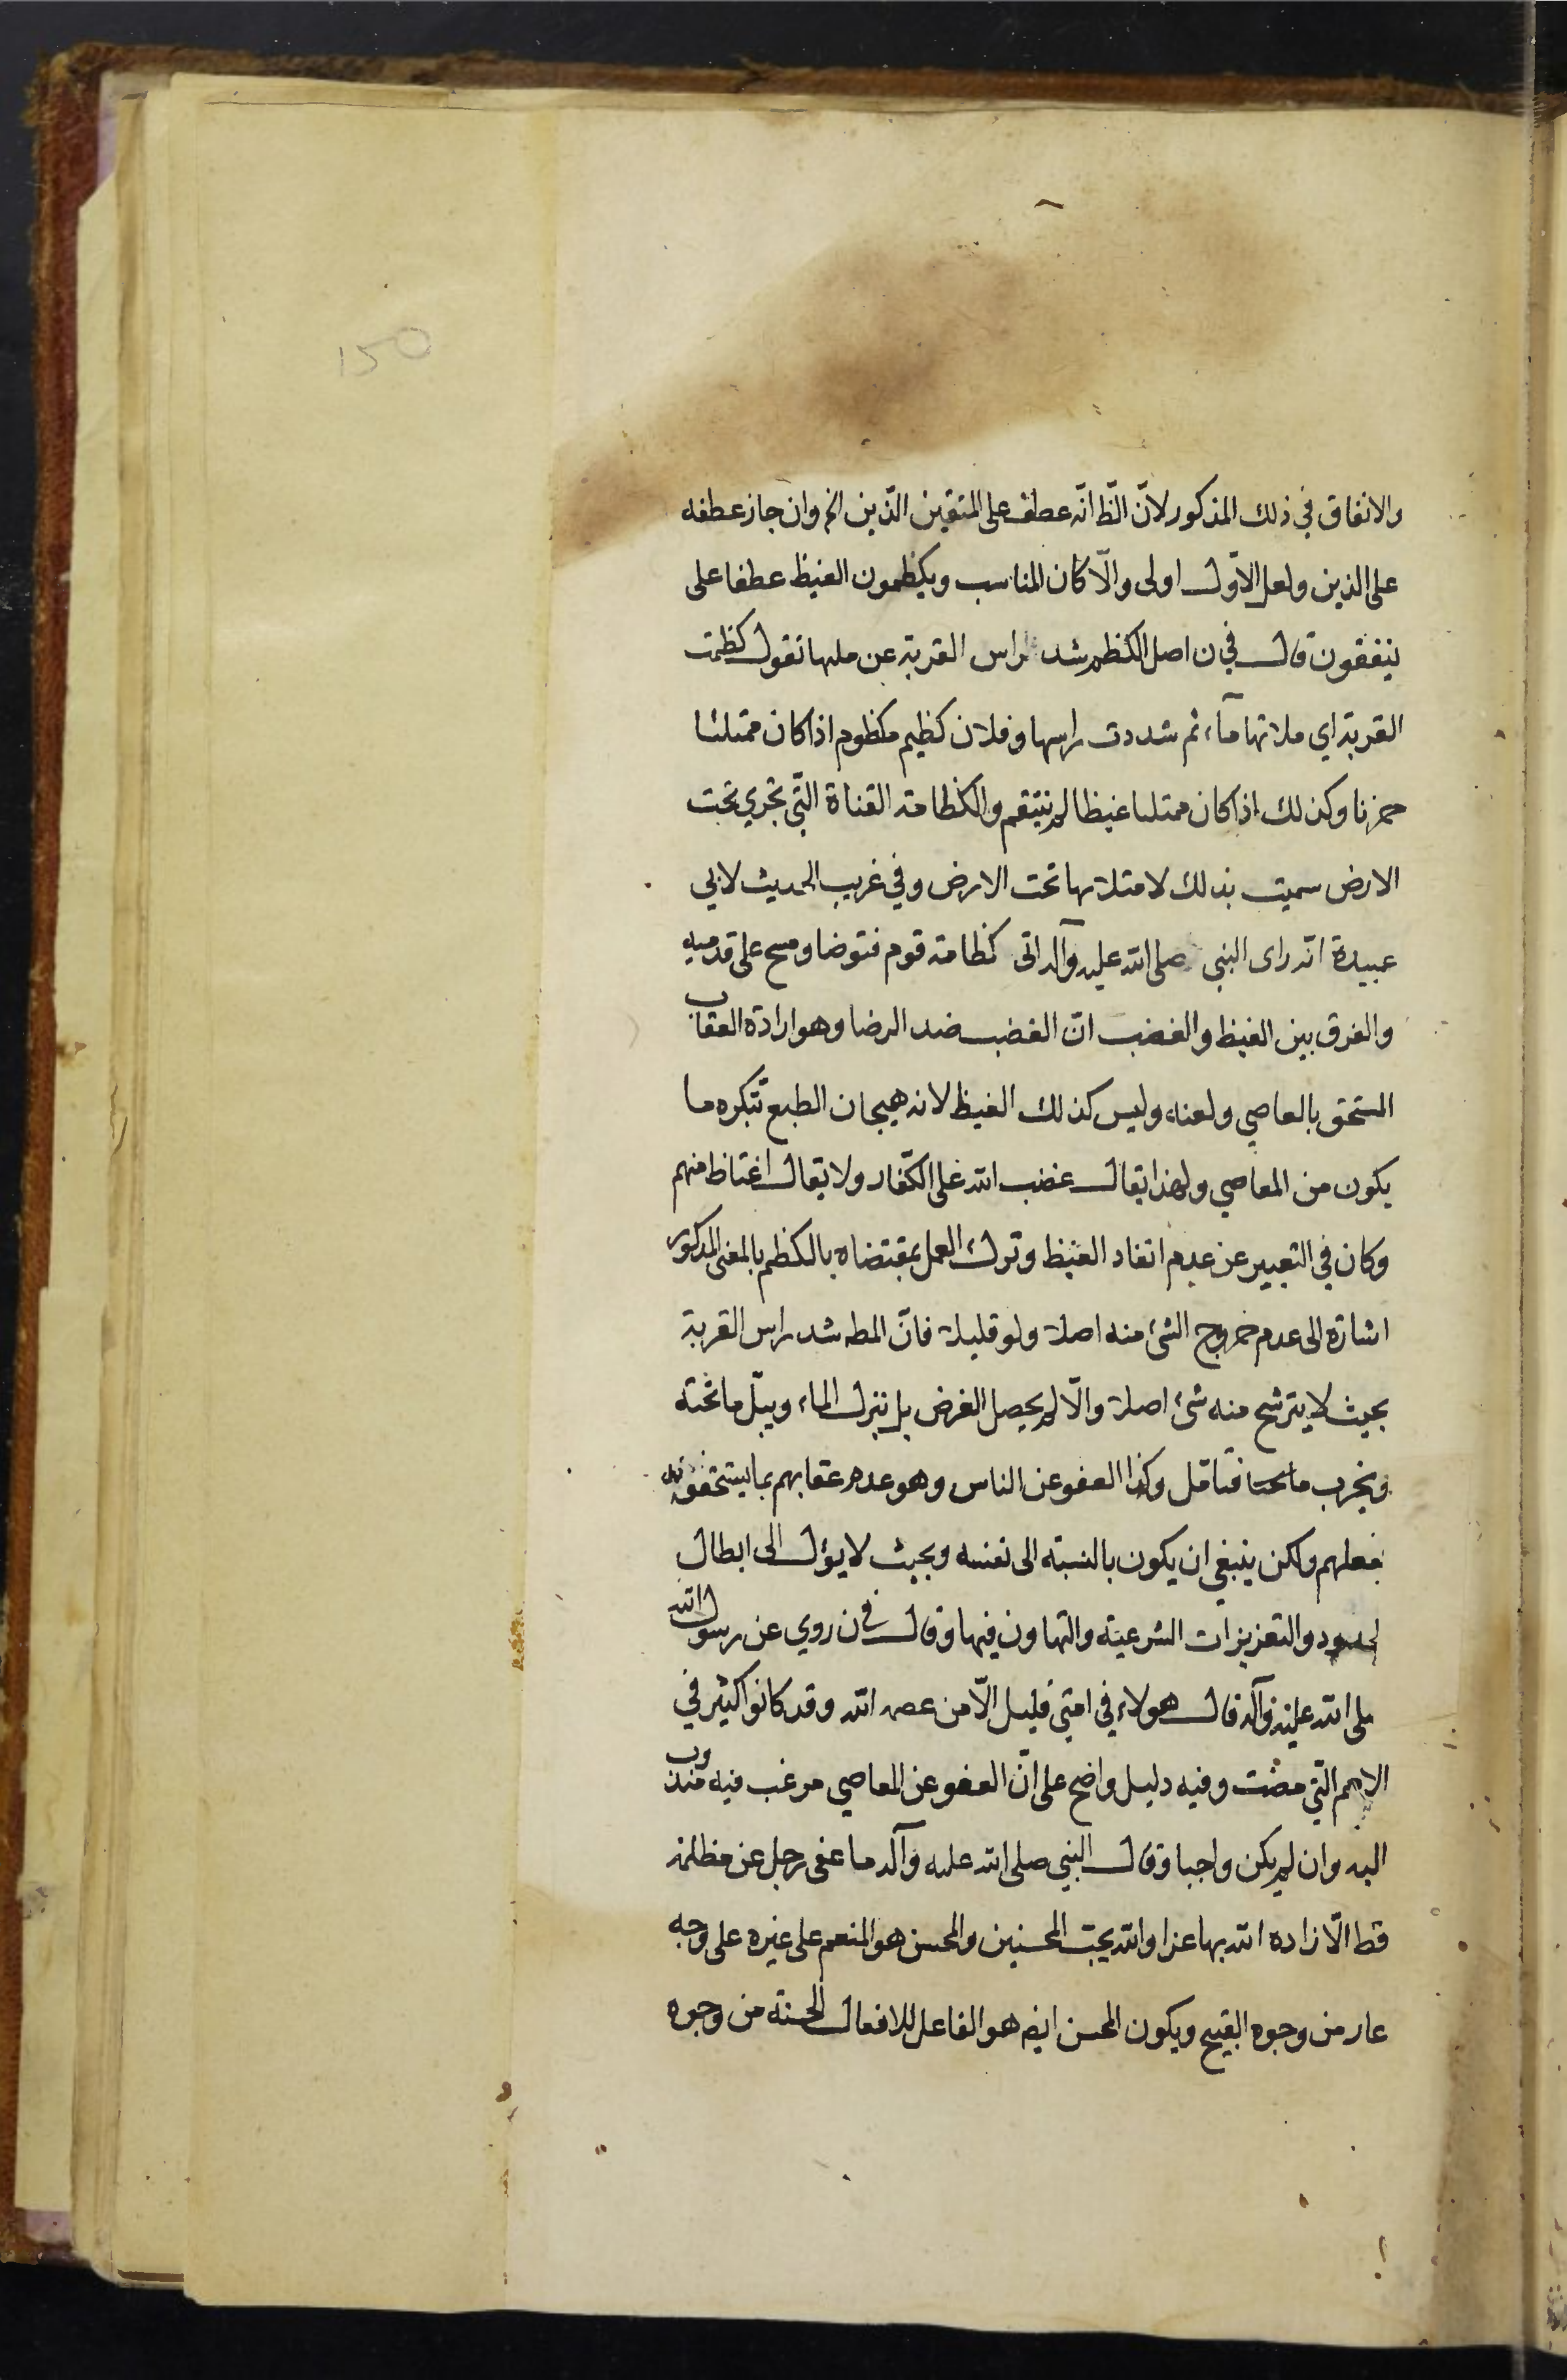 150
والانفاق في ذلك المذكور لانّ الظ انّه عطف على المتقين الّذين الخ وان جاز عطفه
على الذين ولعل الاوّل اولى والّا كان المناسب ويكظمون الغيظ عطفا على
ينفقون قال في ن اصل الكظم شد راس القربة عن ملها تقول كظمت
القربة اي ملاتها مآء ثم شددت راسها وفلان كظيم مكظوم اذا كان ممتلئا
حزنا وكذلك اذا كان ممتلئا غيظا لم ينتقم والكظامة القناة الّتي تجري تحت
الارض سميت بذلك لامتلائها تحت الارض وفي غريب الحديث لابي
عبيدة انّه راى النبي صلى الله عليه وآله اتى كظامة قوم فتوضا ومسح على قدميه
والفرق بين الغيظ والغضب انّ الغضب ضد الرضا وهو ارادة العقاب
المستحق بالعاصي ولعنه وليس كذلك الغيظ لانه هيجان الطبع بتكره ما
يكون من المعاصي ولهذا يقال غضب الله على الكفّار ولا يقال اغتاظ منهم
وكان في التعبير عن عدم انفاد الغيظ وترك العمل بمقتضاه بالكظم بالمعنى المذكور
اشارة الى عدم خروج الشئ منه اصلا ولو قليلا فانّ المط شد راس القربة
بحيث لا يترشح منه شئ اصلا والّا لم يحصل الغرض بل ينزل الماء ويبلّ ما تحته
ويخرب ما تحتا فتامّل وكذا العفو عن الناس وهو عدم عقابهم بما يستحقونه
بفعلهم ولكن ينبغي ان يكون بالنسبة الى نفسه وبحيث لا يؤل الى ابطال
الحدود والتعزيزات الشرعيّة والتهاون فيها وقال في ن روي عن رسول الله
صلى الله عليه وآله قال هولاء في امتي قليل الّا من عصمه الله وقد كانوا كثير في
الامم الّتي مضت وفيه دليل واضح على انّ العفو عن المعاصي مرغب فيه مندوب
اليه وان لم يكن واجبا وقال النبي صلى الله عليه وآله ما عفى رجل عن مظلمة
قط الّا زاده الله بها عزا والله يحبّ المحسنين والمحسن هو المنعم على غيره على وجه
عار من وجوه القبيح ويكون المحسن ايض هو الفاعل للافعال الحسنة من وجوه